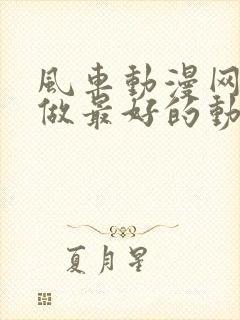 風車動漫网
做最好的動
夏月星